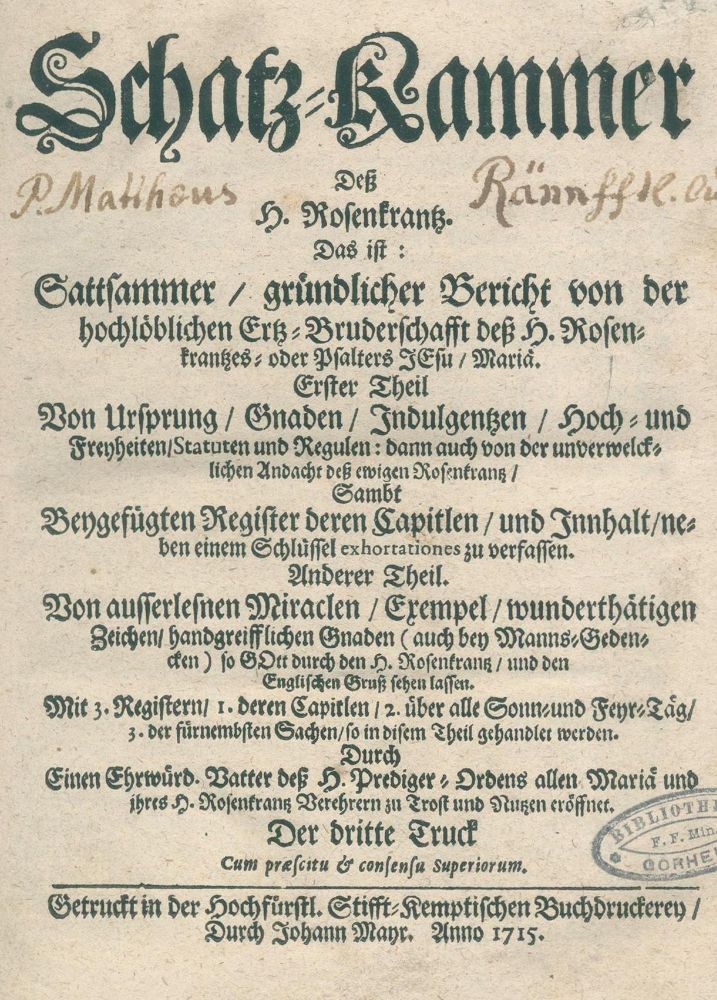 Schatz-Kammer
P. Mattheus
Deß
H. Rosenkrantz.
Das ist:
Sattsammer / gründlicher Bericht von der
hochlöblichen Ertz-Bruderschafft deß H. Rosen-
krantzes- oder Psalters JEsu / Mariä.
Erster Theil
Von Ursprung / Gnaden / Indulgentzen / Hoch- und
Freyheiten/Statuten und Regulen: dann auch von der unverwelck-
lichen Andacht deß ewigen Rosenkrantz /
Sambt
Beygefügten Register deren Capitlen / und Innhalt/ne-
ben einem Schlüssel exhortationes zu verfassen.
Anderer Theil.
Von ausserlesnen Miraclen / Exempel / wunderthätigen
Zeichen/ handgreifflichen Gnaden ( auch bey Manns-Geden-
cken ) so GOtt durch den H. Rosenkrantz / und den
Englischen Gruß sehen lassen.
Mit 3. Registern/ 1. deren Capitlen / 2. über alle Sonn- und Feyr-Täg/
3. der fürnembsten Sachen/so in disem Theil gehandlet werden.
Durch
Einen Ehrwürd. Vatter deß H. Prediger-Ordens allen Mariä und
ihres H. Rosenkrantz Verehrern zu Trost und Nutzen eröffnet.
Der dritte Truck
Cum præscitu & consensu Superiorum.
BIBLIOTHE
F. F. Min
GORHE
Getruckt in der Hochfürstl. Stifft-Kemptischen Buchdruckerey /
Durch Johann Mayr. Anno 1715.